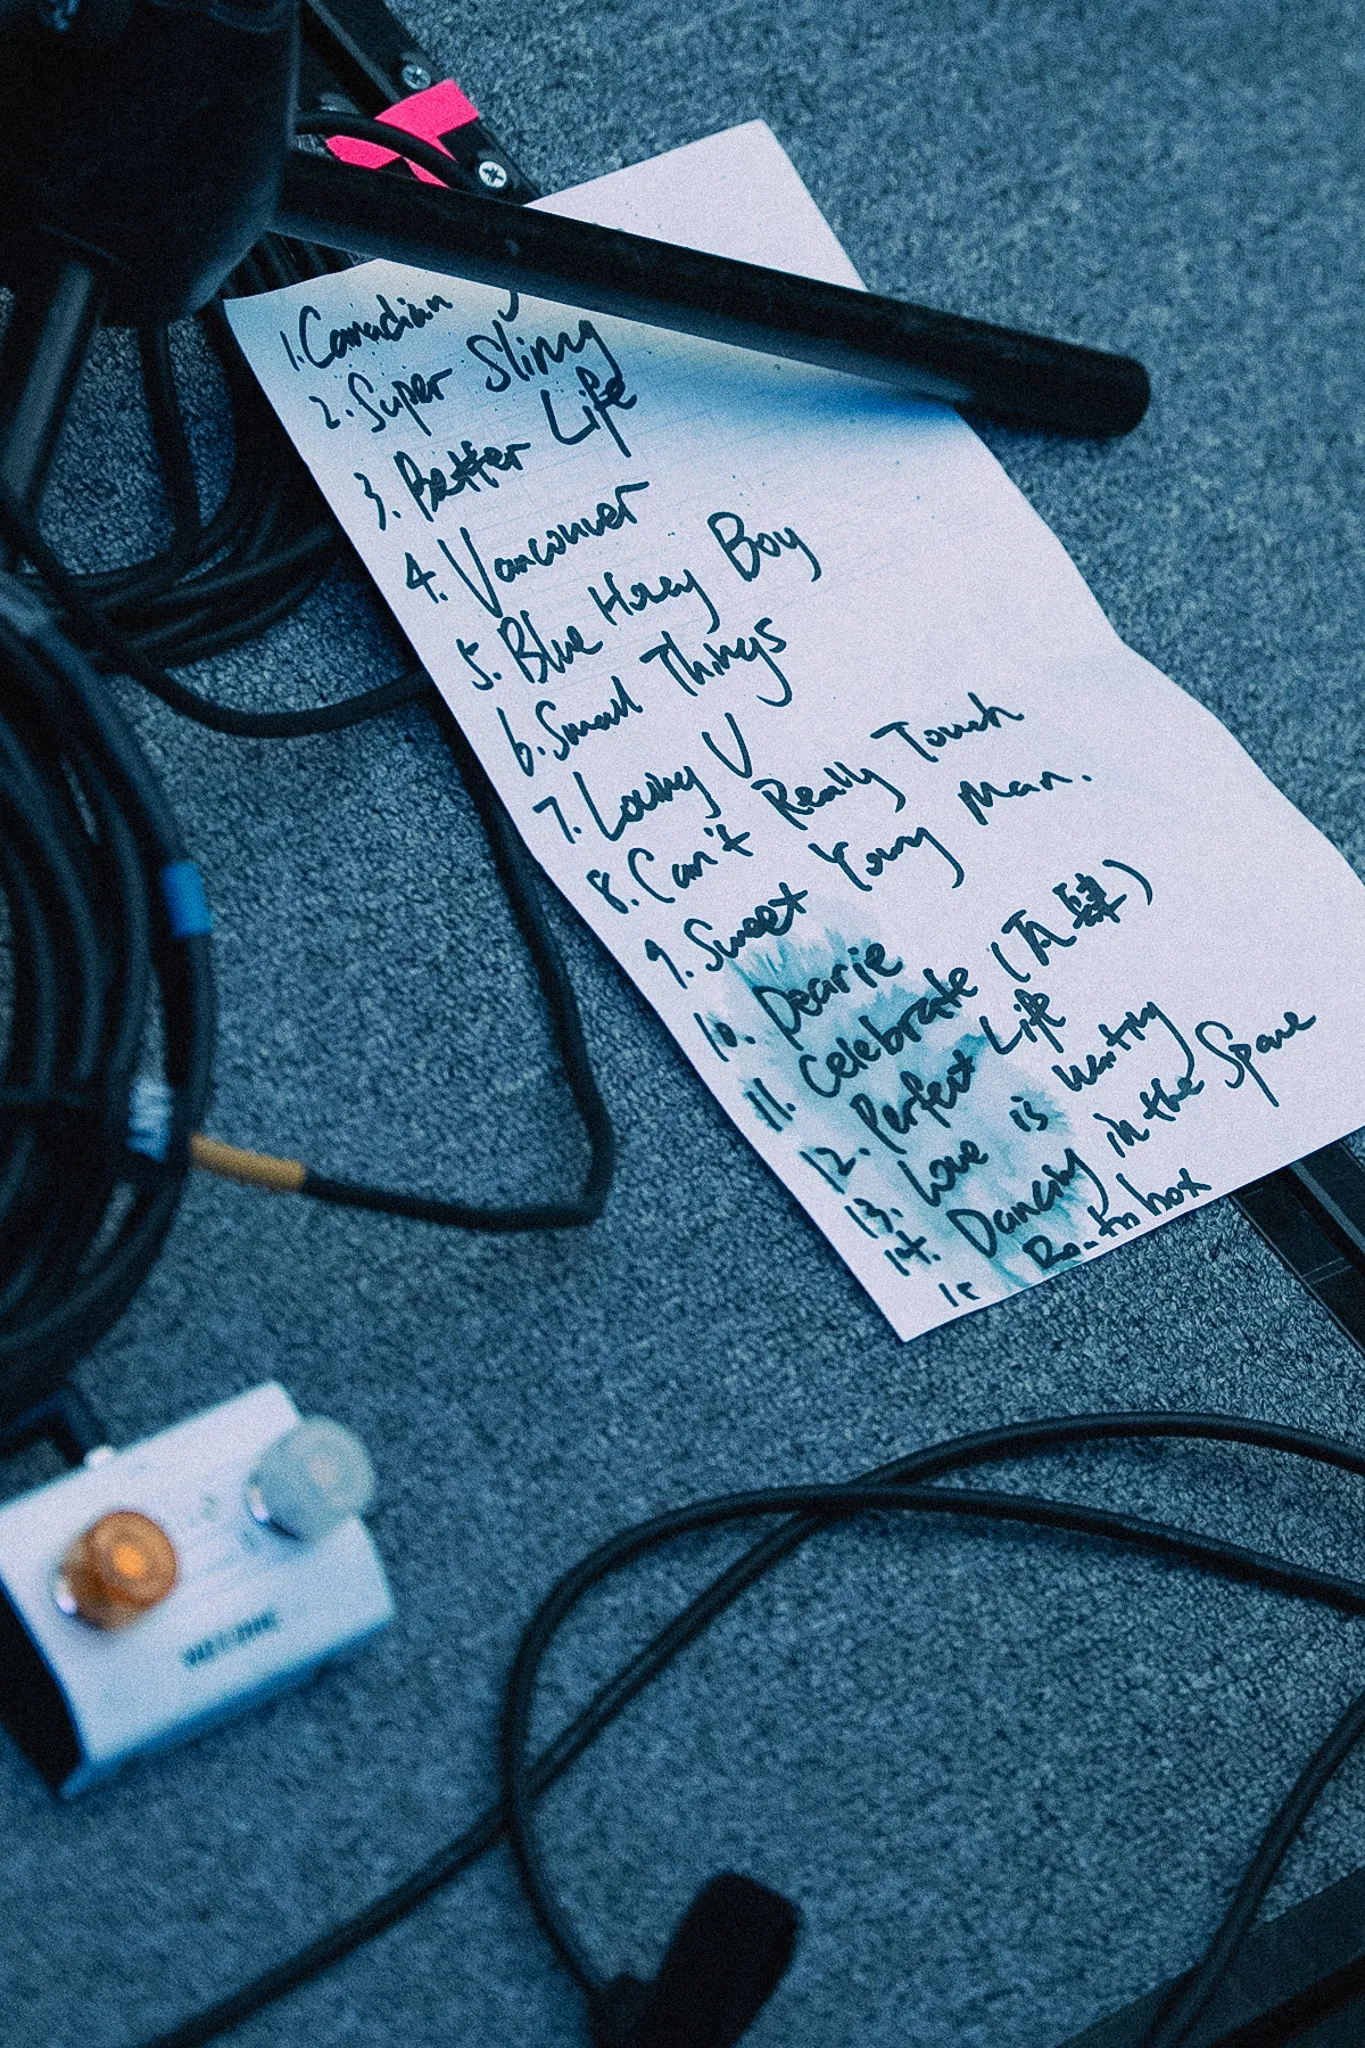 1. Canadian
2. Super Slimy
3. Better Life
4. Vancouver
5. Blue Honey Boy
6. Small Things
7. Loving U
8. Can't Really Touch
9. Sweet Young Man.
10. Dearie
11. Celebrate
12. Perfect Life
13. Love is
14. Dancing in the Space
15 box